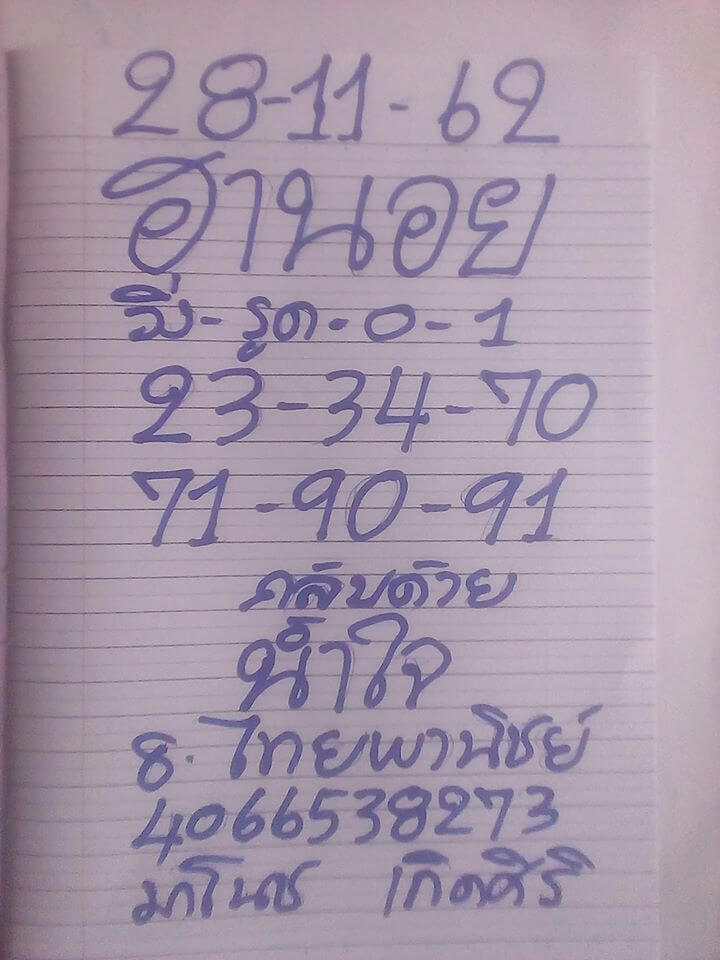 28-11-62
ฮานอย
วิ่ง-รูด-0-1
23-34-70
71-90-91
กลับด้วย
น้ำใจ
ธ.ไทยพานิชย์
4066538273
มาโนช เกิดศิริ